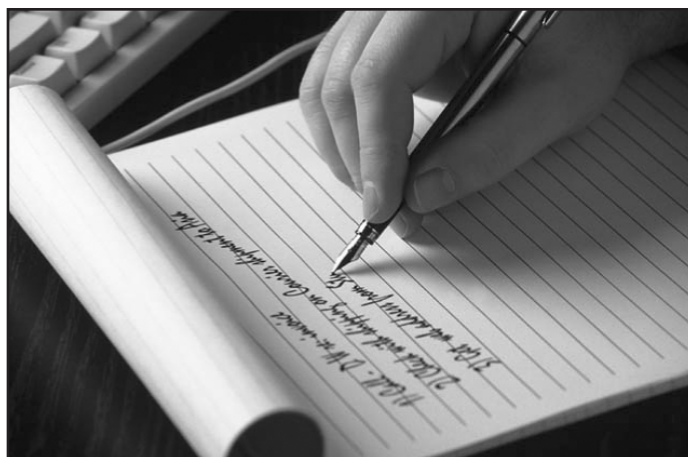 1) Call - DW re: invoice
2) Check with shipping on Courier shipment to
3) Get web address from Ste